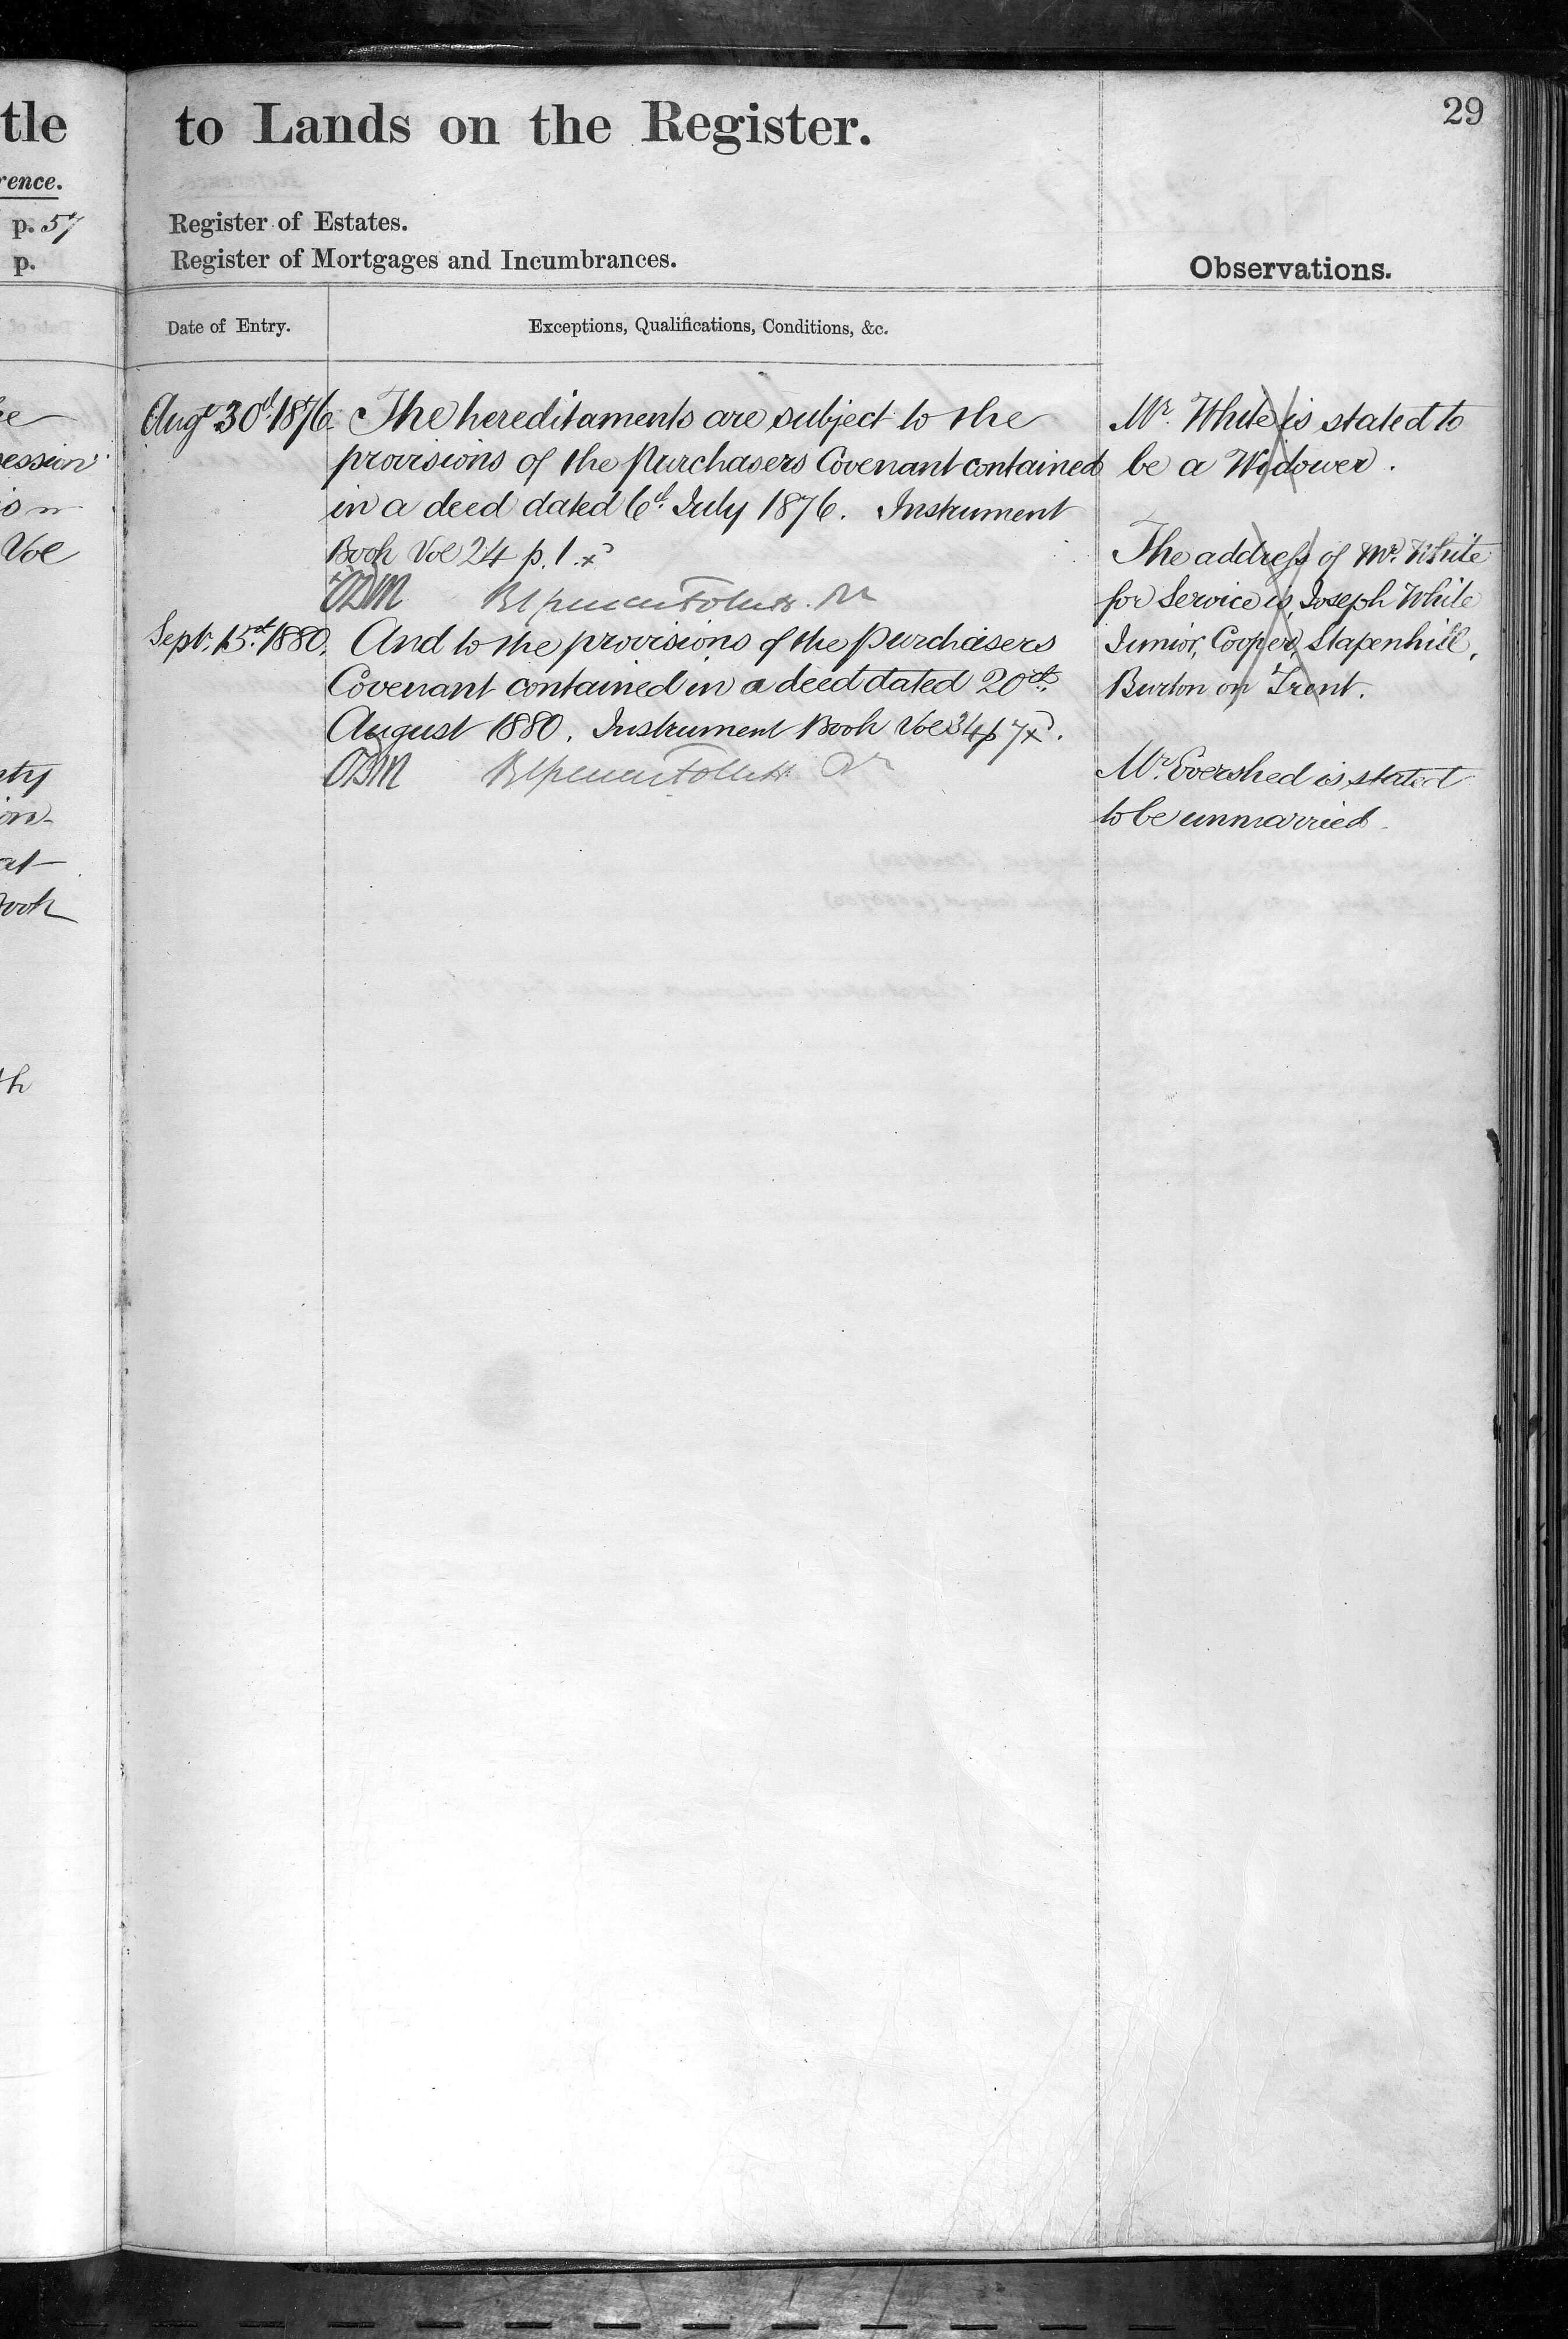 tle
rence.
p. 57
p.
ession
Vol
at
29
to Lands on the Register.
Register of Estates.
Register of Mortgages and Incumbrances.
Observations.
Date of Entry.
Exceptions, Qualifications, Conditions, &c.
Augt 30th 1876.
The hereditaments are subject to the
provisions of the Purchasers Covenant contained
in a deed dated 6th July 1876. Instrument
Book Vol 24 p. 1.
Septr. 15th 1880.
And to the provisions of the Purchasers
Covenant contained in a deed dated 20th
August 1880. Instrument Book Vol 34 p 7
Mr. White is stated to
be a Widower.
The address of Mr. White
for Service is, Joseph White
Junior, Cooper, Stapenhill,
Burton on Trent.
Mr. Evershed is stated
to be unmarried